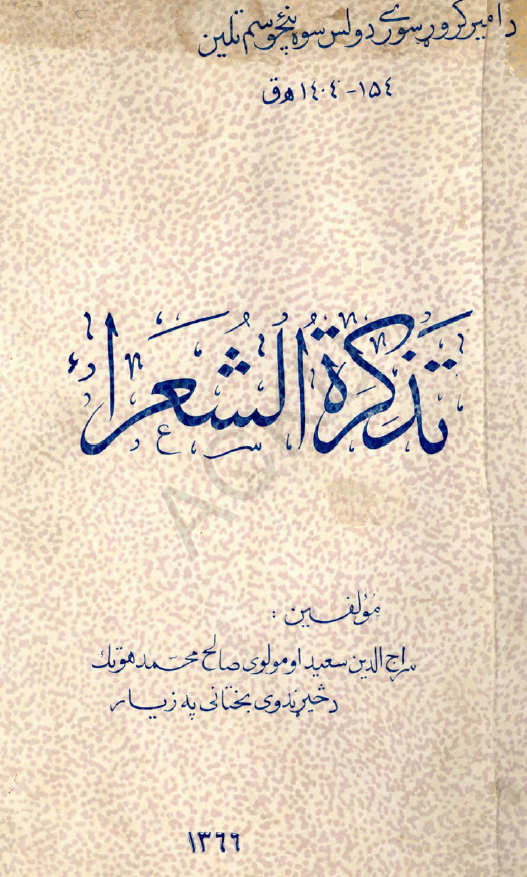 د امیر کروړ سوري دولس سوه پنځوسم تلین
١٥٤-١٤٠٤ هـ ق
تذکرة الشعراء
مؤلفین :
سراج الدین سعید او مولوی صالح محمد هوتک
د څیړندوی بختانی په زیار
١٣٦٦